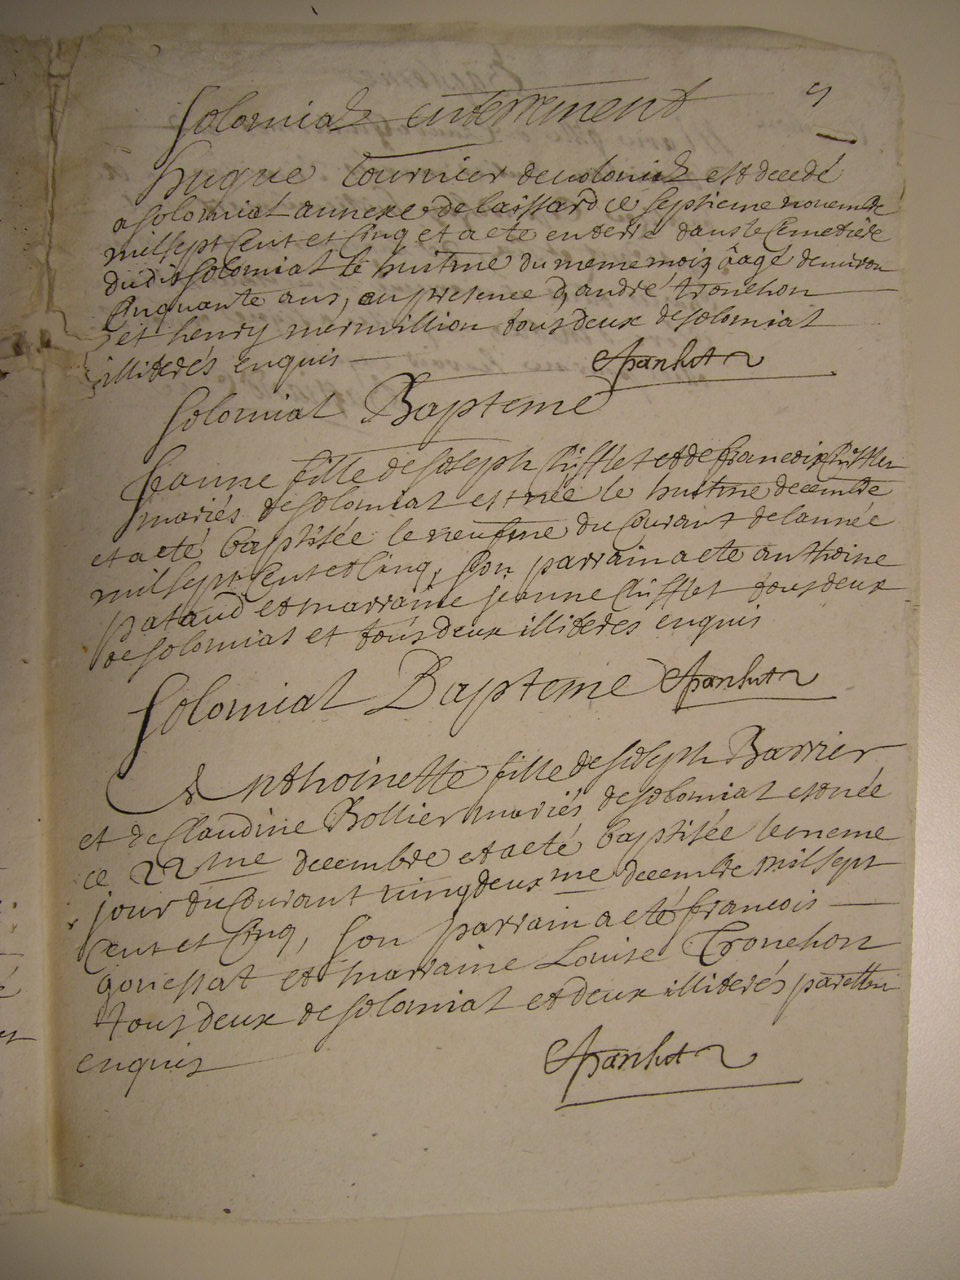 Solomiat enterrement
hugue tournier de solomiat est decedé
a solomiat annexe de laissard ce septieme novembre
mil sept Cent et Cinq et a eté enterré dans le Cemetiere
dudit solomiat le huitme du meme mois âagé denviron
Cinquante ans, en presence d'andré tronchon
et henry mermillion tous deux de solomiat
illiterés enquis
Solomiat Bapteme
Jeanne fille de Joseph Chifflet et de francoise Chifflet
mariés de solomiat est née le huitme decembre
et a eté baptisée le neufme du Courant de lannée
mil sept Cent et Cinq, son parrain a eté anthoine
pataud et marraine jeanne Chifflet tous deux
de solomiat et tous deux illiteres enquis
Solomiat Bapteme
Anthoinette fille de Joseph Barrier
et de Claudine Bollier mariés de solomiat est née
ce 22me decembre et a eté baptisée le meme
jour du Courant vingdeuxme decembre mil sept
Cent et Cinq, son parrain a eté francois
gonessat et marraine Louise Tronchon
tous deux de solomiat et deux illiterés
enquis